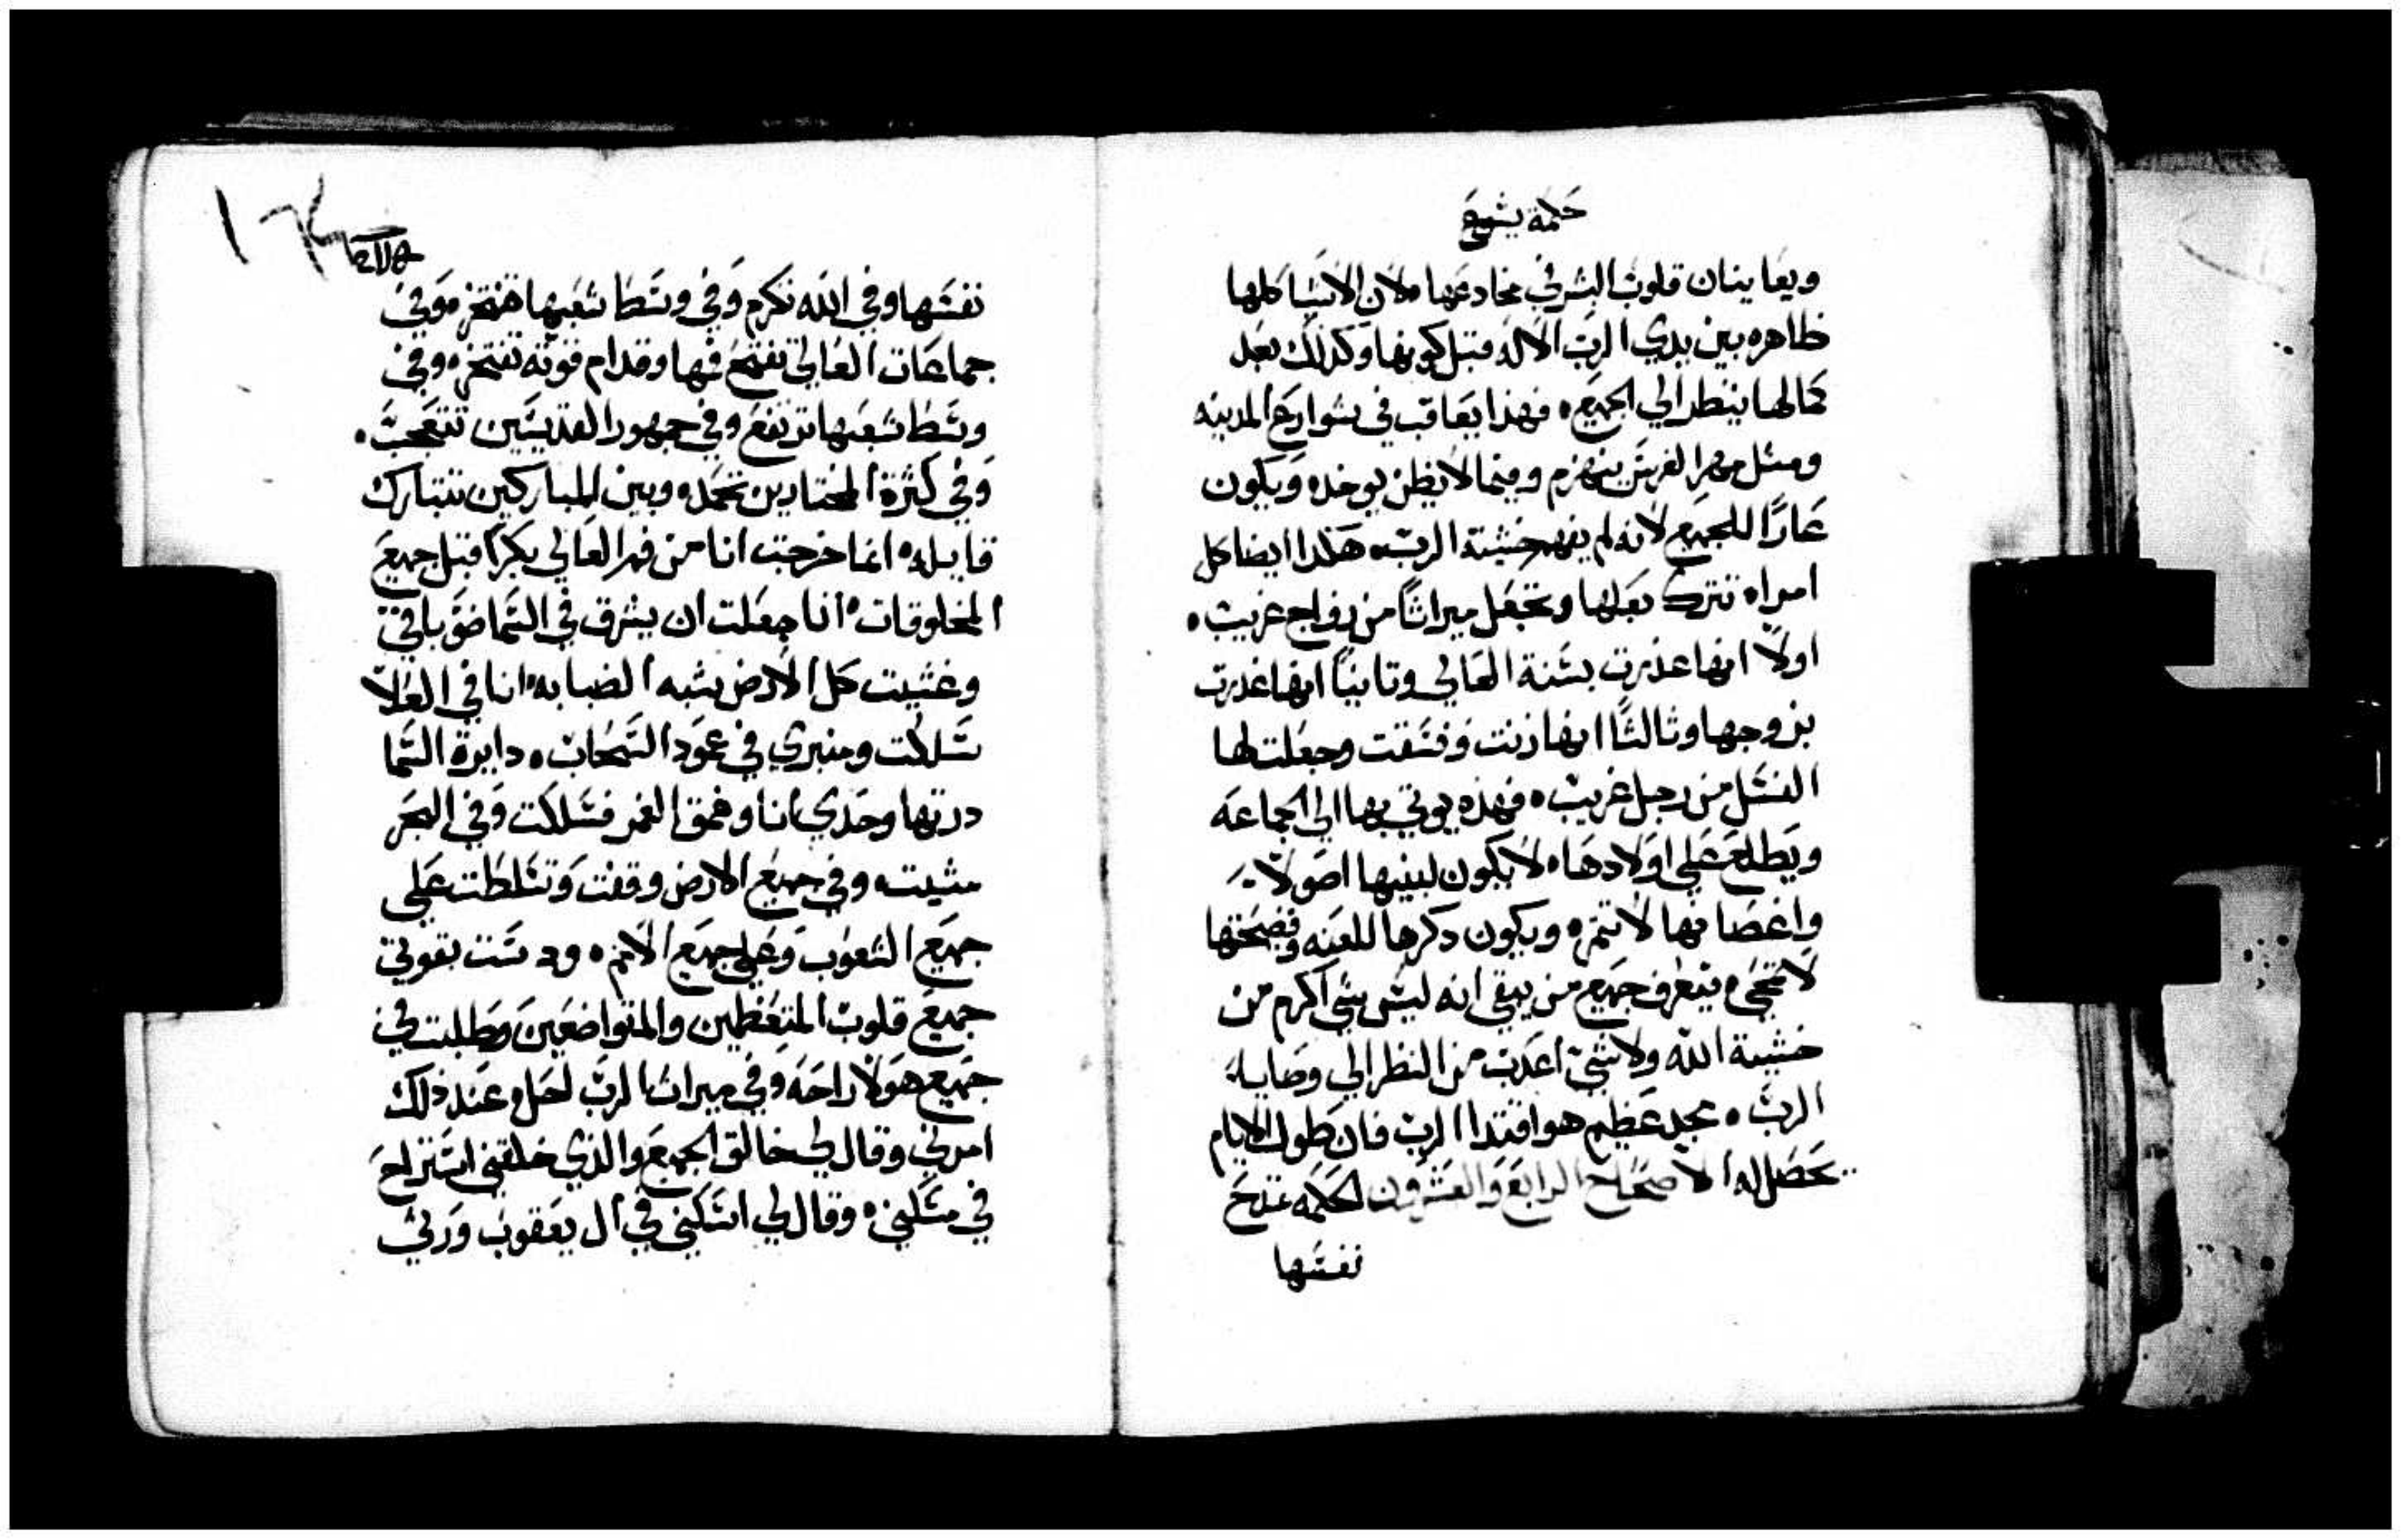 حكمة يشوع
ويعاينان قلوب البشر في مخادعها ولان الاشيا كلها
ظاهره بين يدي الرب الاله قبل كونها وكذلك بعد
كمالها ينظر الي الجميع. فهذا يعاقب في شوارع المدينه
ومثل مهر الفرس ينهزم وفيما لا يظن يوخد. ويكون
عارًا للجميع لانه لم يفهم خشية الرب. هكذا ايضا كل
امراه تترك بعلها وتجعل ميراثًا من زواج غريب.
اولًا انها غدرت بسنة العالي وتانيًا انها غدرت
بزوجها وثالثًا انها زنت وفسقت وجعلت لها
النسل من رجل غريب. فهذه يوتي بها الي الجماعه
ويطلع علي اولادها. لا يكون لبنيها اصولًا
واغصانها لا تثمر. ويكون ذكرها للعنه وفضيحتها
لا تمحي. فيعرف جميع من يبقي انه ليس شي اكرم من
خشية الله ولا شي اعدب من النظر الي وصايا
الرب. مجد عظيم هو اقتدا الرب فان طول الايام
يحصل له الاصحاح الرابع والعشرون الحكمه تمدح
نفسها
١٦
نفسها وفي الله تكرم وفي وسط شعبها تفتخر. وفي
جماعات العالي تفتح فمها وقدام قوته تفتخر. وفي
وسط شعبها ترتفع وفي جمهور القديسين تتعجب.
وفي كثرة المختارين تحمد. وبين المباركين تتبارك
قايله. انما خرجت انا من فم العالي بكرًا قبل جميع
المخلوقات. انا جعلت ان يشرق في السما ضو باقي
وغشيت كل الارض بشبه الضبابه. انا في العلا
سلكت ومنبري في عمود السحاب. دايرة السما
درتها وحدي انا وعمق الغمر فسلكت وفي البحر
مشيت. وفي جميع الارض وقفت وتسلطت علي
جميع الشعوب وعلي جميع الامم. ودست بقوتي
جميع قلوب المتعظمين والمتواضعين وطلبت في
جميع هولا راحه وفي ميراث الرب لحل. عند ذلك
امرني وقال لي خالق الجميع والذي خلقني استراح
في مسكني. وقال لي اسكني في ال يعقوب ورثي